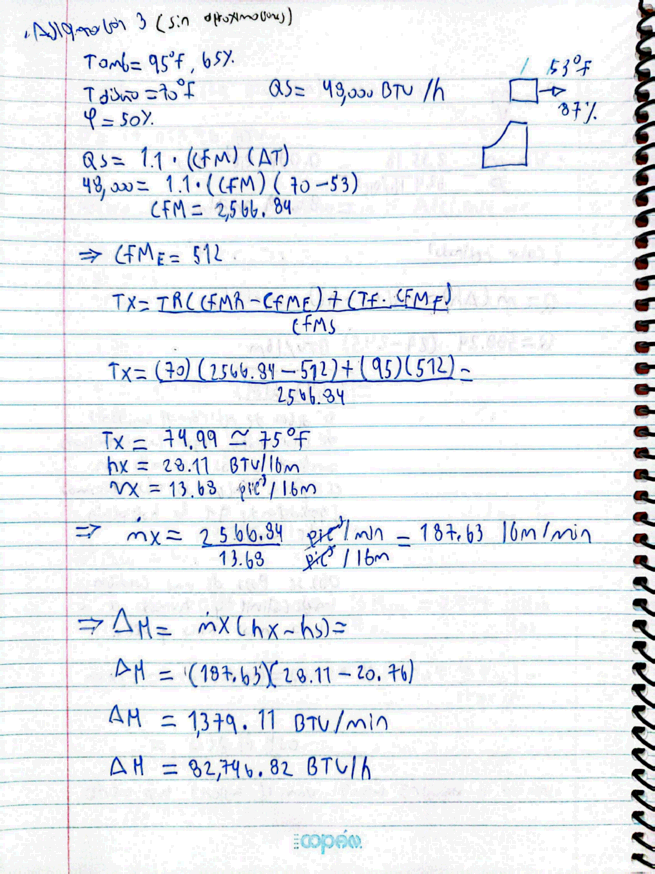 Asignación 3 (sin aproximaciones)
Tamb = 95°f, 65%
Tdiseño = 70°f
QS = 48,000 BTU /h
φ = 50%
53°f
87%
QS = 1.1 · (CfM) (ΔT)
48,000 = 1.1 · (CfM) (70 - 53)
CfM = 2,566.84
⇒ CfM_E = 512
TX = TR(CfMR - CfM_F) + (Tf · CfM_F)
CfMs
TX = (70)(2566.84 - 512) + (95)(512) =
2566.84
TX = 74.99 ≃ 75°f
hx = 28.11 BTU/lbm
vx = 13.68 pie³/lbm
⇒ ṁx = 2566.84 pie³/min = 187.63 lbm/min
13.68 pie³/lbm
⇒ ΔH = ṁx (hx - hs) =
ΔH = (187.63)(28.11 - 20.76)
ΔH = 1,379.11 BTU/min
ΔH = 82,746.82 BTU/h